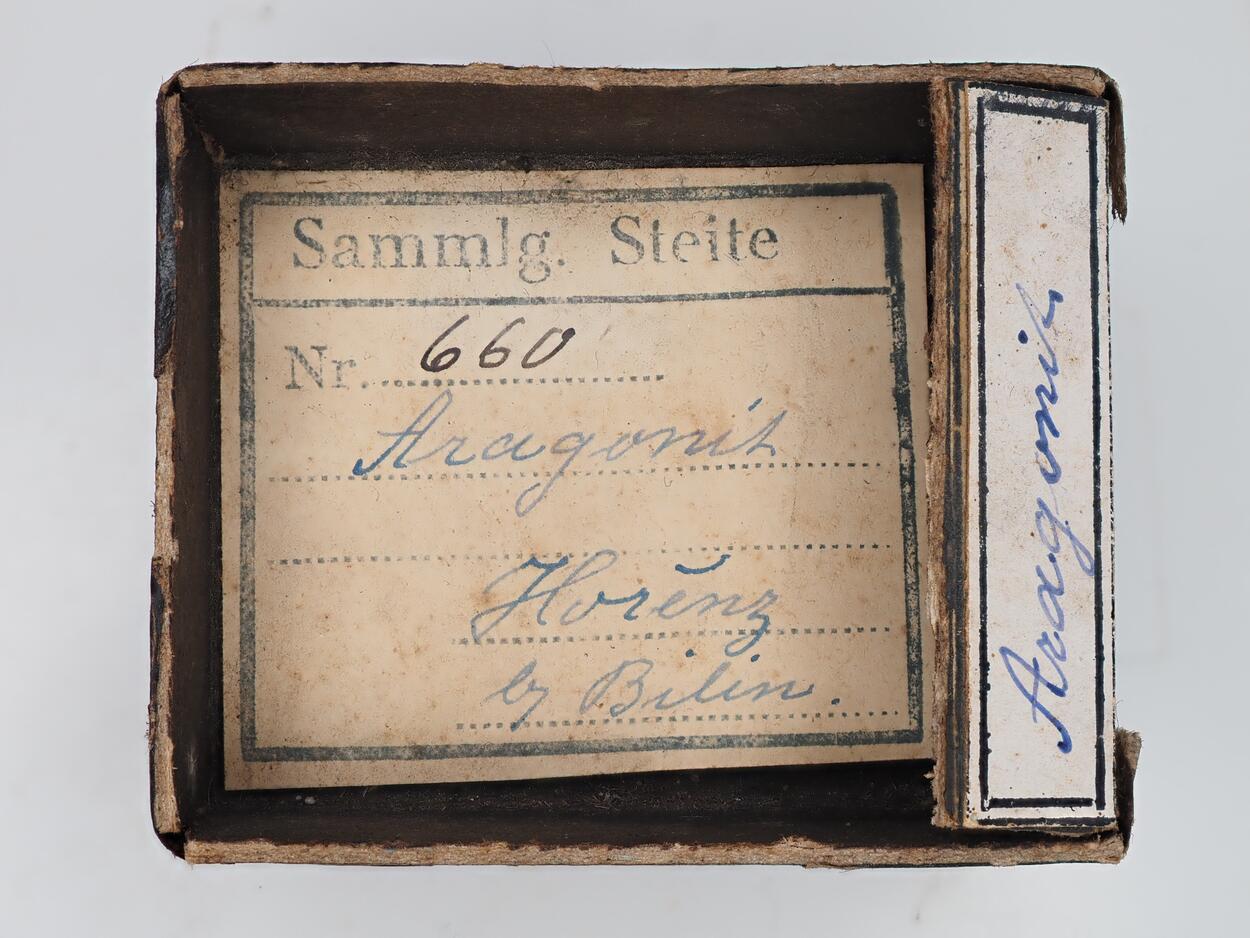 Sammlg. Steite
Nr. 660
Aragonit
Hořenz
by Bilin.
Aragonit